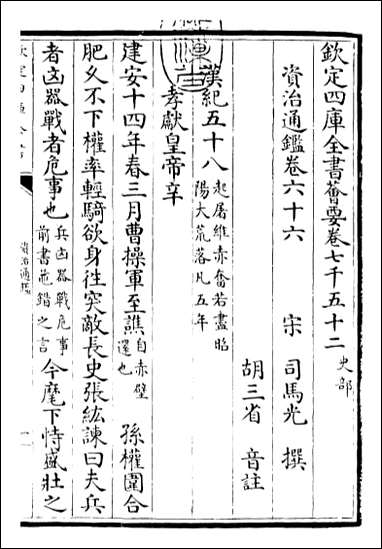 欽定四庫全書薈要卷七千五十二 史部
資治通鑑卷六十六
宋 司馬光 撰
胡三省 音註
漢紀五十八 起屠維赤奮若盡昭陽大荒落凡五年
孝獻皇帝辛
建安十四年春三月曹操軍至譙 自赤壁還也 孫權圍合
肥久不下權率輕騎欲身往突敵長史張紘諫曰夫兵
者凶器戰者危事也 兵凶器戰危事前書鼂錯之言 今麾下恃盛壯之